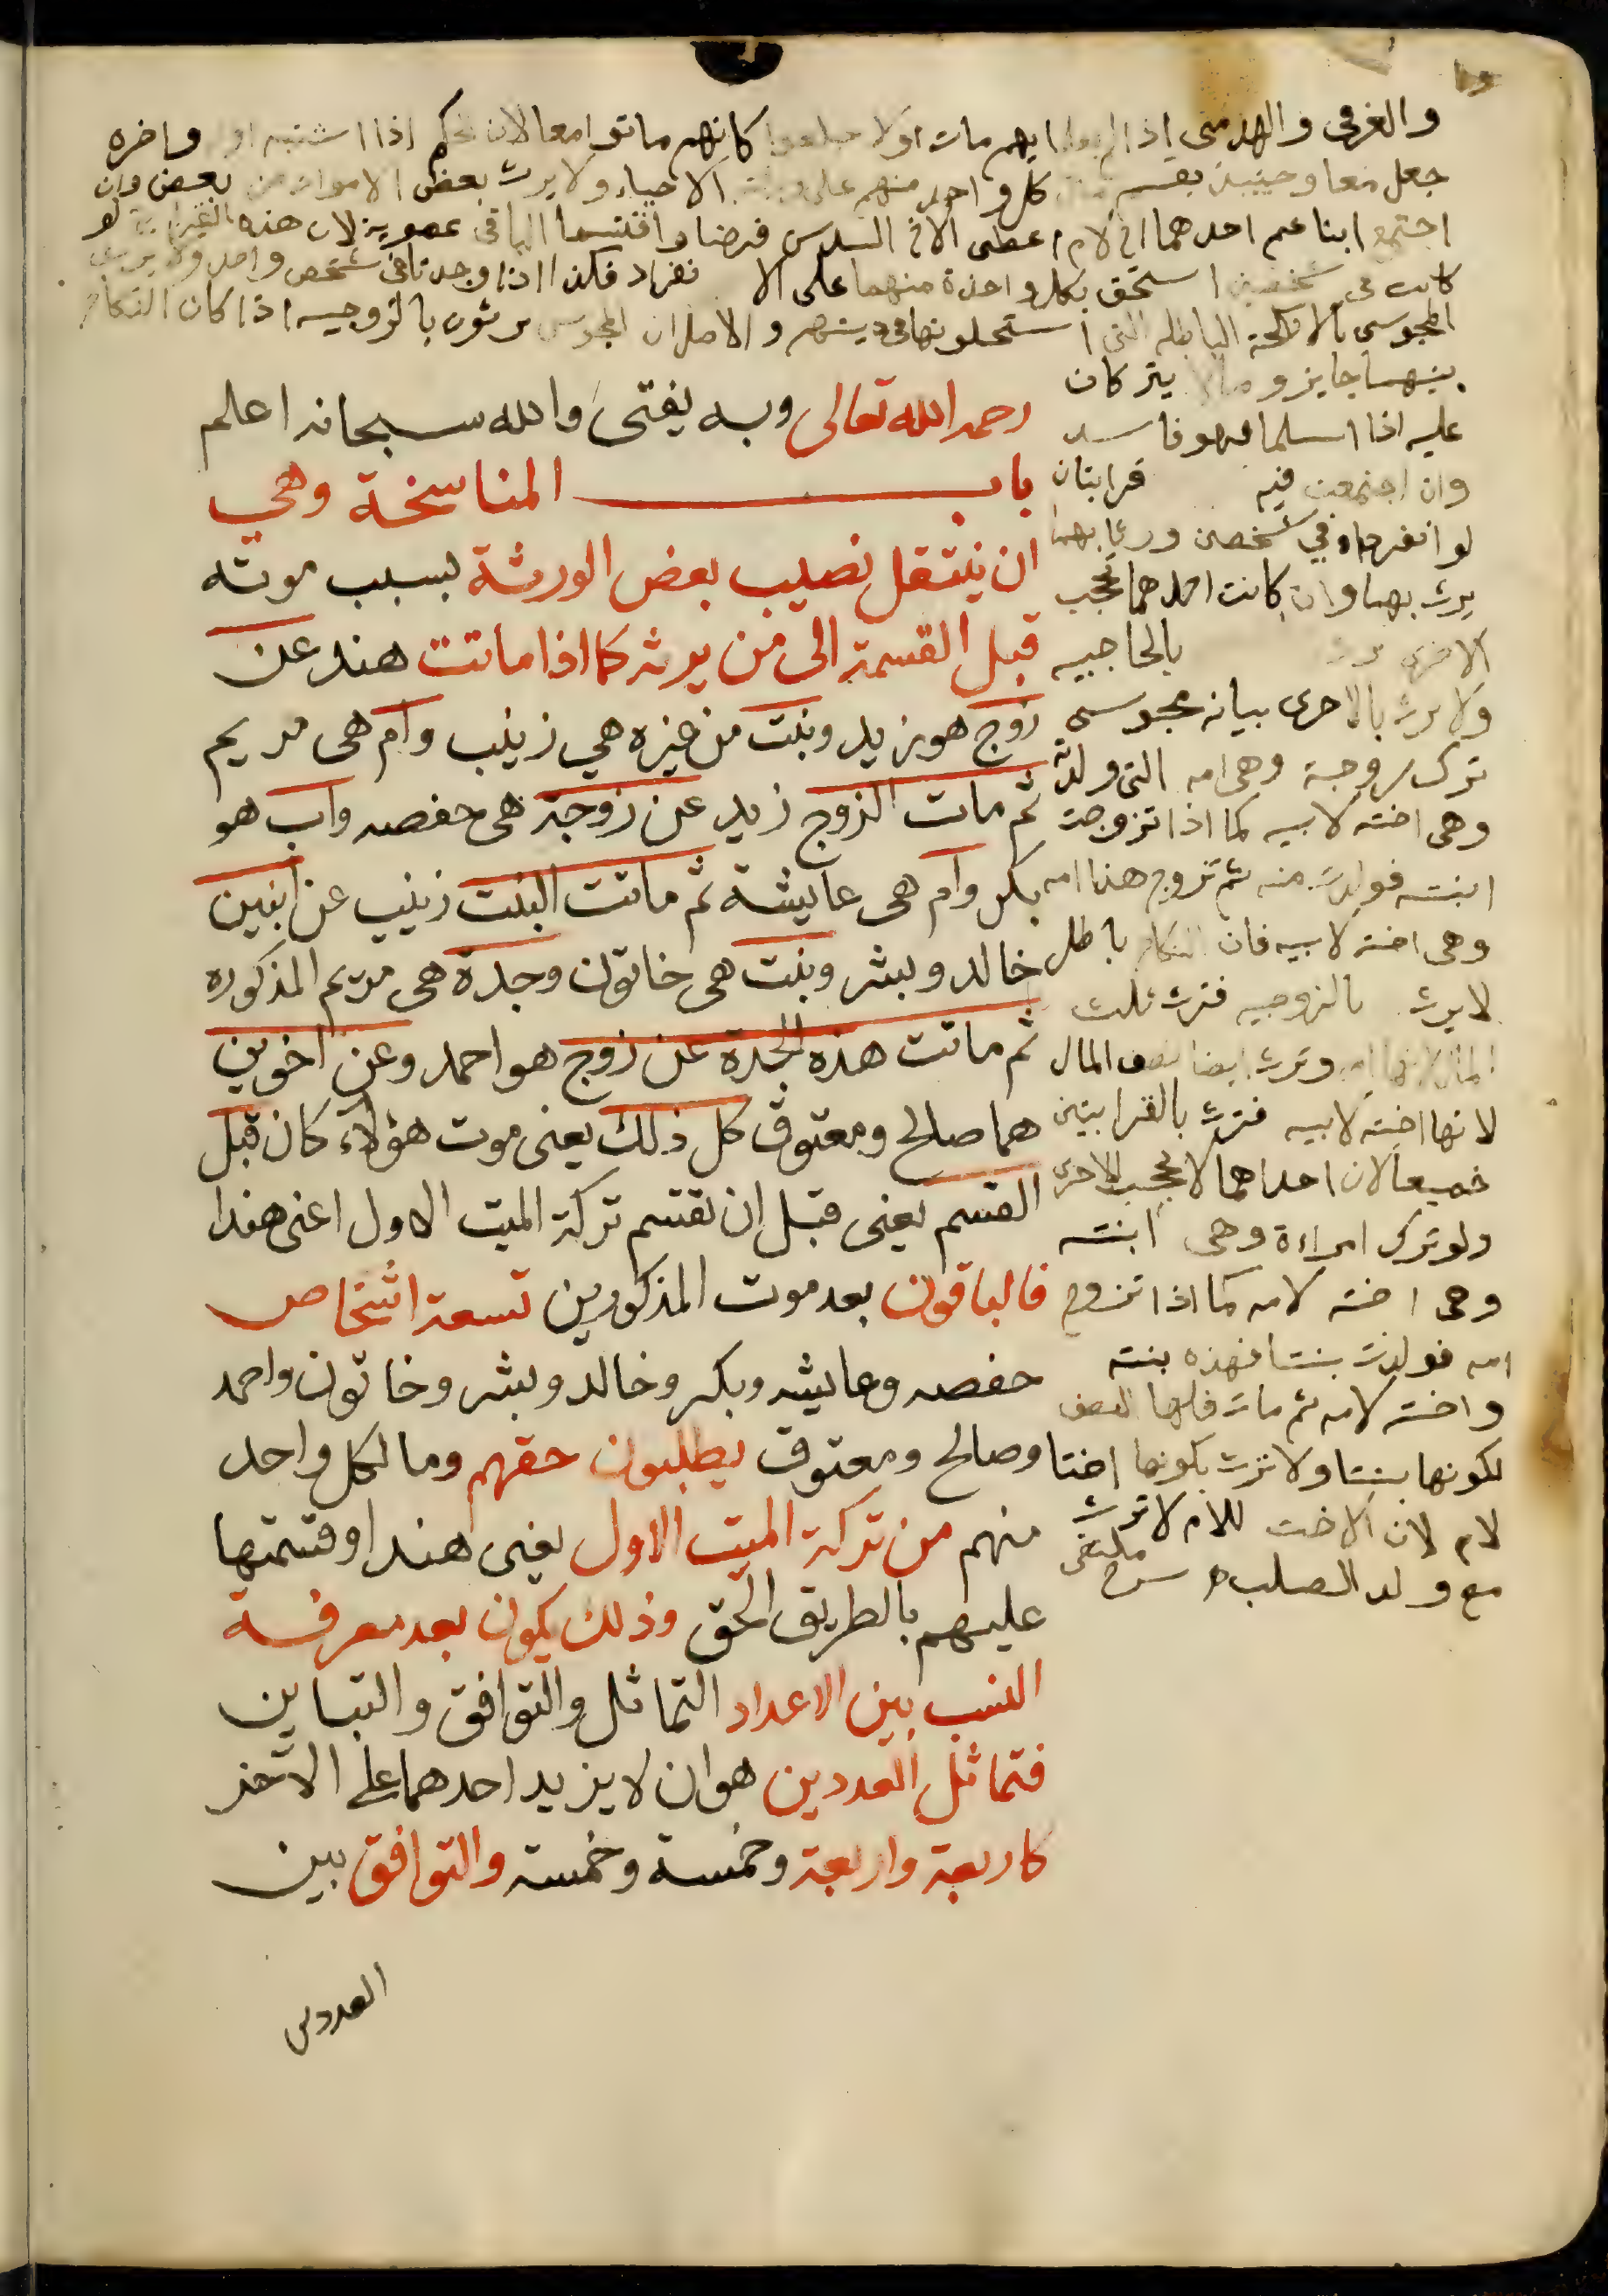 والغرقى والهدمى اذا لم يعلم ايهم مات اولا جعلوا كانهم ماتوا معا لان نحكم اذا اشتبه واخره
جعل معا وحينئذ يقسم مال كل واحد منهم على الاحياء ولا يرث بعض الاموات من بعض وان
اجتمع ابنا عم احدهما اخ لام اعطى الاخ السدس فرضا واقتسما الباقى عصوبة لان هذه القرابة لو
كانت في شخصين استحق بكل واحدة منهما على الانفراد فكذا اذا وجدتا في شخص واحد ولا يرث
المجوسى بالانكحة الباطلة التى استحلونها في دينهم والاصل ان المجوسى يرثون بالزوجيه اذا كان النكاح
بينهما جايز وما لا يتركان
عليه اذا اسلما فهو فاسد
وان اجتمعت فيه قرابتان
لو انفردا في شخصين ورثا بهما
يرث بهما وان كانت احدهما تحجب
الاخرى يرث بالحاجبيه
ولا يرث بالاخرى بيانه مجوسى
ترك زوجة وهى امه التى ولدته
وهى اخته لابيه كما اذا تزوجت
ابنته فولدت منه ثم تزوج هذا امه
وهى اخته لابيه فان النكاح باطل
لا يرث بالزوجيه فترث ثلث
المال لانها امه وترث ايضا نصف المال
لانها اخته لابيه فترث بالقرابتين
جميعا لان احداهما لا تحجب الاخرى
ولو ترك امراءة وهى ابنته
وهى اخته لامه كما اذا تزوج
امه فولدت بنتا فهذه بنته
واخته لامه ثم مات فلها النصف
لكونها بنتا ولا ترث بكونها اختا
لام لان الاخت للام لا ترث
مع ولد الصلب شرح ملتقى
رحمه الله تعالى وبه يفتى والله سبحانه اعلم
باب المناسخة وهي
ان ينتقل نصيب بعض الورثة بسبب موته
قبل القسمة الى من يرثه كما اذا ماتت هند عن
زوج هو زيد وبنت من غيره هي زينب وام هى مريم
ثم مات الزوج زيد عن زوجة هى حفصه واب هو
بكر وام هى عايشة ثم ماتت البنت زينب عن ابنين
خالد وبشر وبنت هى خاتون وجدة هى مريم المذكوره
ثم ماتت هذه الجدة عن زوج هو احمد وعن اخوين
هما صالح ومعتوق كل ذلك يعنى موت هؤلاء كان قبل
القسم يعنى قبل ان تقتسم تركة الميت الاول اعنى هندا
فالباقون بعد موت المذكورين تسعة اشخاص
حفصه وعايشه وبكر وخالد وبشر وخاتون واحمد
وصالح ومعتوق يطلبون حقهم وما لكل واحد
منهم من تركة الميت الاول يعنى هندا وقسمتها
عليهم بالطريق الحق وذلك يكون بعد معرفة
النسب بين الاعداد التماثل والتوافق والتباين
فتماثل العددين هو ان لا يزيد احدهما على الآخر
كاربعة واربعة وخمسة وخمسة والتوافق بين
العددين